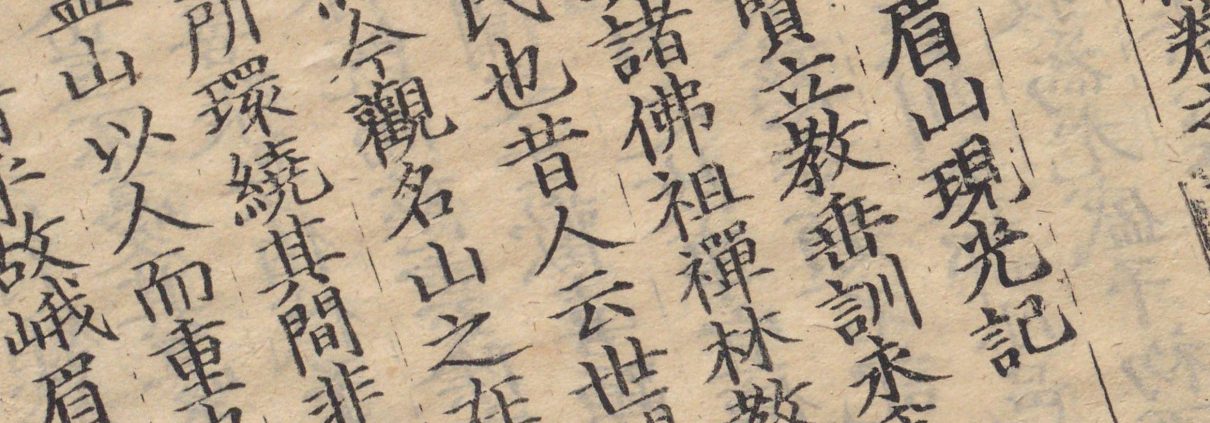 眉山現光記
立教垂訓永
諸佛祖禪林教
民也昔人云世
今觀名山之在
所環繞其間非
山以人而重
故峨眉